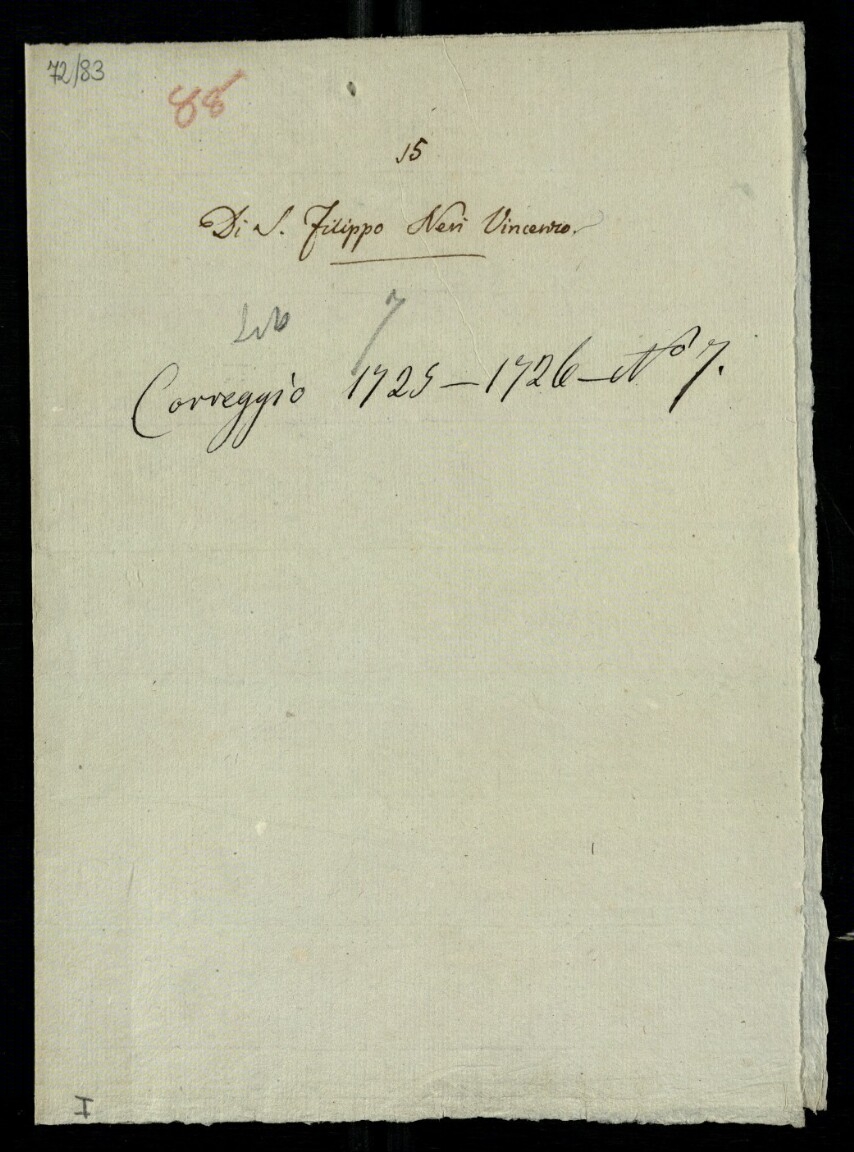 72/83
88
15
Di S. Filippo Neri Vincenzo.
7
Correggio 1725 — 1726 — No 7.
I